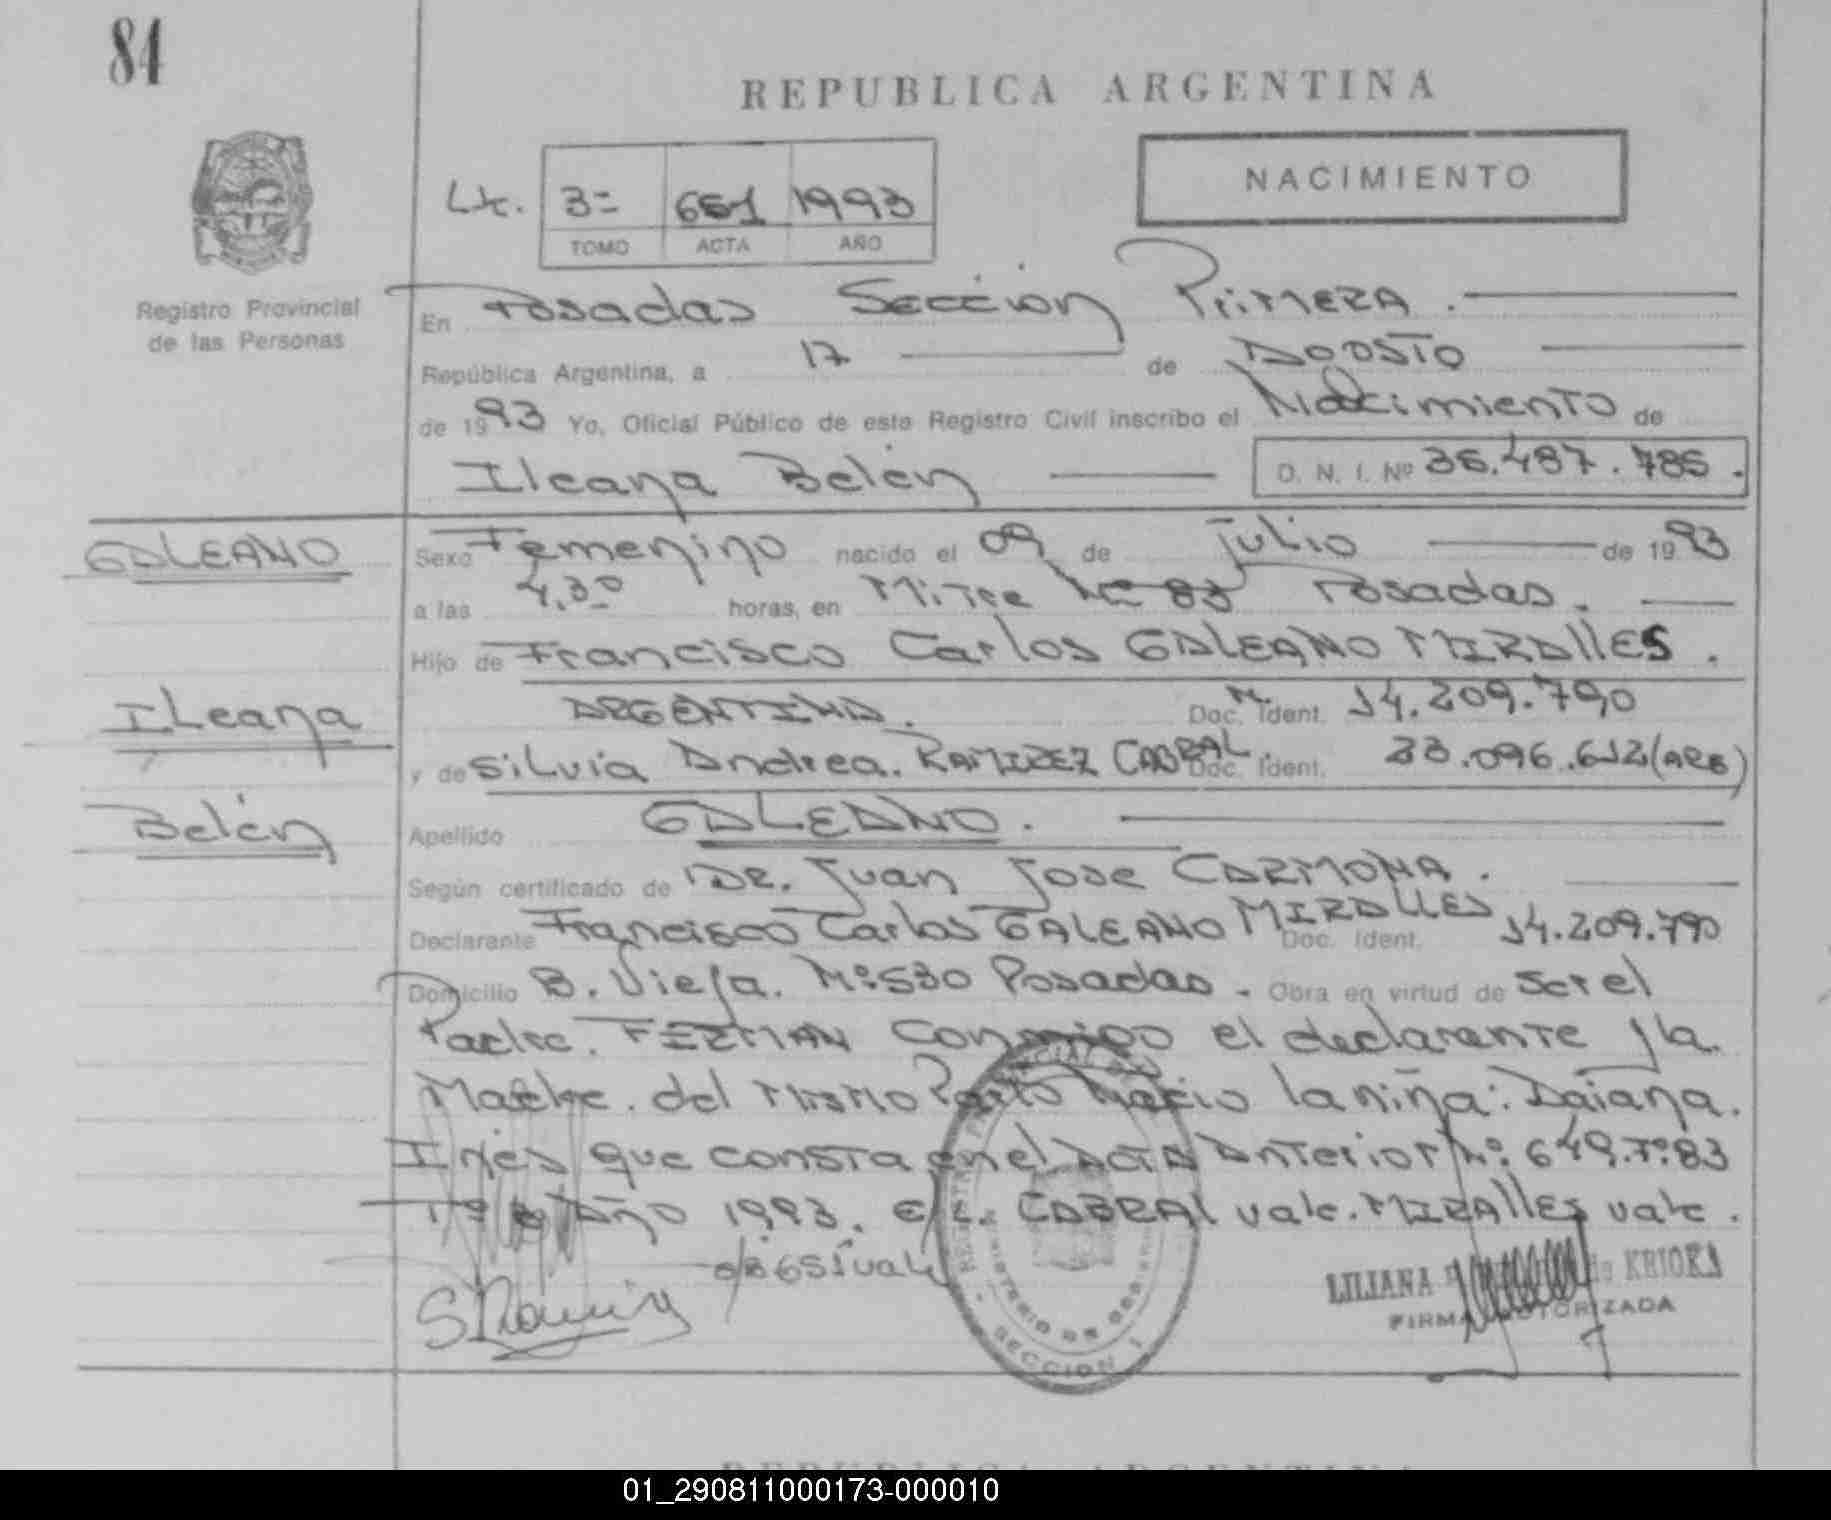 84
REPUBLICA ARGENTINA
NACIMIENTO
3= 651 1993
TOMO ACTA AÑO
Registro Provincial
de las Personas
En Posadas Sección Primera.
República Argentina, a 17 de Agosto
de 1993 Yo, Oficial Público de este Registro Civil inscribo el Nacimiento de
Ileana Belén D. N. I. Nº 36.487.785.
GALEANO
Sexo Femenino nacido el 09 de Julio de 1993
a las 4,30 horas, en Mitre Nº 83 Posadas.
Hijo de Francisco Carlos GALEANO MIRALLES.
Ileana
ARGENTINA. Doc. Ident. M. 14.209.790
y de Silvia Andrea. RAMIREZ CABRAL. Doc. Ident. 33.096.612 (ARG)
Belén
Apellido GALEANO.
Según certificado de DR. Juan Jose CARMONA.
Declarante Francisco Carlos GALEANO MIRALLES Doc. Ident. 14.209.790
Domicilio B. Vieja. Nº 530 Posadas. Obra en virtud de ser el
Padre. FIRMAN conmigo el declarante y la
Madre. del mismo Parto Nacio la niña: Daiana.
Inés que consta en el Acta Anterior Nº. 649. Fº 83
Año 1993. CABRAL vale. MIRALLES vale.
651 vale
SECCION 1
LILIANA de KRIOKA
FIRMA AUTORIZADA
REPUBLICA ARGENTINA
01_290811000173-000010